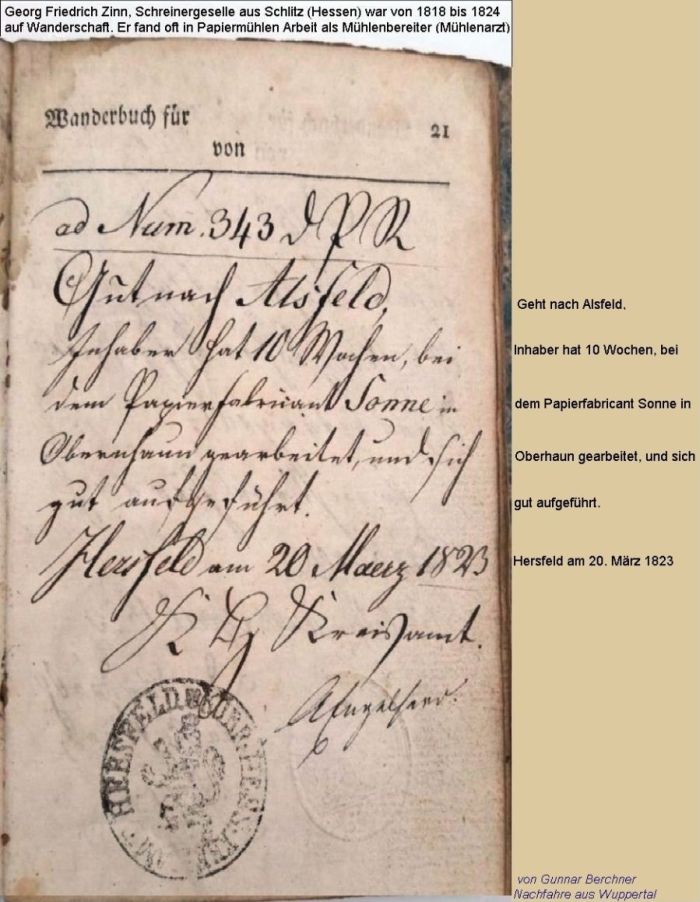 Georg Friedrich Zinn, Schreinergeselle aus Schlitz (Hessen) war von 1818 bis 1824
auf Wanderschaft. Er fand oft in Papiermühlen Arbeit als Mühlenbereiter (Mühlenarzt)
Wanderbuch für
21
von
ad Num. 343 d P R
Gut nach Alsfeld,
Inhaber hat 10 Wochen, bei
dem Papierfabricant Sonne in
Obernhaun gearbeitet, und sich
gut aufgeführt.
Hersfeld am 20 Maerz 1823
Kreisamt.
HERSFELD KURHESS.
Geht nach Alsfeld,
Inhaber hat 10 Wochen, bei
dem Papierfabricant Sonne in
Oberhaun gearbeitet, und sich
gut aufgeführt.
Hersfeld am 20. März 1823
von Gunnar Berchner
Nachfahre aus Wuppertal